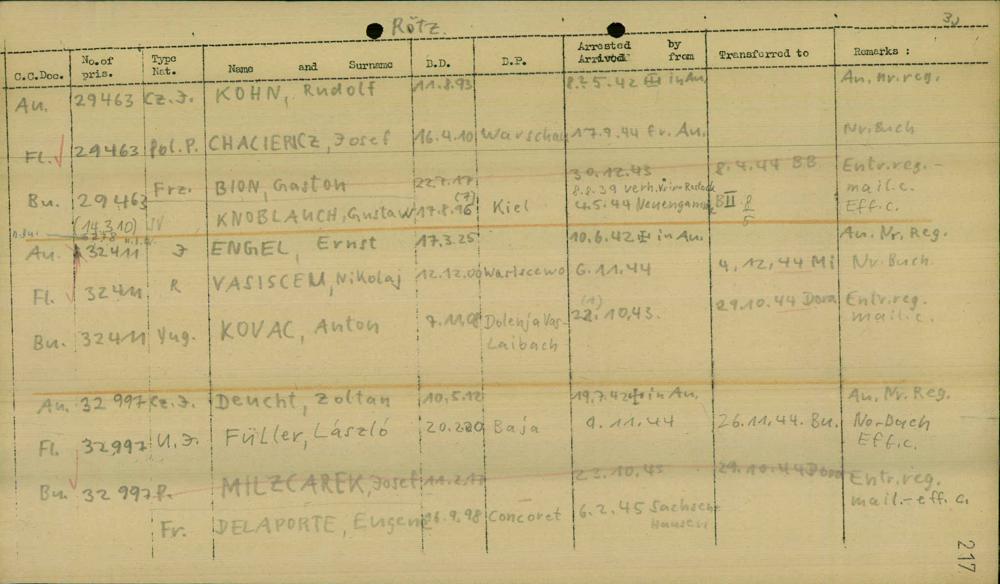 Rötz. 3)
C.C.Doc. No.of pris. Type Nat. Name and Surname B.D. D.P. Arrested Arrived by from Transferred to Remarks :
Au. 29463 Cz.J. KOHN, Rudolf 11.8.93 8.5.42 in Au. Au. Nr. reg.
Fl. 29463 Pol.P. CHACIERICZ, Josef 16.4.10 Warschau 17.9.44 fr. Au. Nr. Buch
Bu. 29463 Frz. BION, Gaston 22.7.17 30.12.43 8.4.44 BB Entr.reg.- mail.c.
(14.3.10) KNOBLAUCH, Gustaw 17.8.96 (?) Kiel 8.8.39 verh. 4.5.44 Neuengamme BII Eff.c.
Au. 32411 J ENGEL, Ernst 17.3.25 10.6.42 in Au. Au. Nr. Reg.
Fl. 32411 R VASISCEM, Nikolaj 12.12.00 Wariscewo 6.11.44 4.12.44 Mi Nr. Buch
Bu. 32411 Yug. KOVAC, Anton 7.11.08 Dolenja Vas- Laibach (1) 22.10.43. 29.10.44 Dora Entr.reg. mail.c.
Au. 32997 Cz.J. Deucht, Zoltan 10.5.12 19.7.42 in Au. Au. Nr. Reg.
Fl. 32997 U.J. Füller, László 20.2.20 Baja 9.11.44 26.11.44. Bu. No-Buch Eff.c.
Bu. 32997 P. MILZCAREK, Josef 11.2.17 23.10.43 29.10.44 Dora Entr.reg. mail.-eff.c.
Fr. DELAPORTE, Eugene 26.9.98 Concoret 6.2.45 Sachsenhausen
217